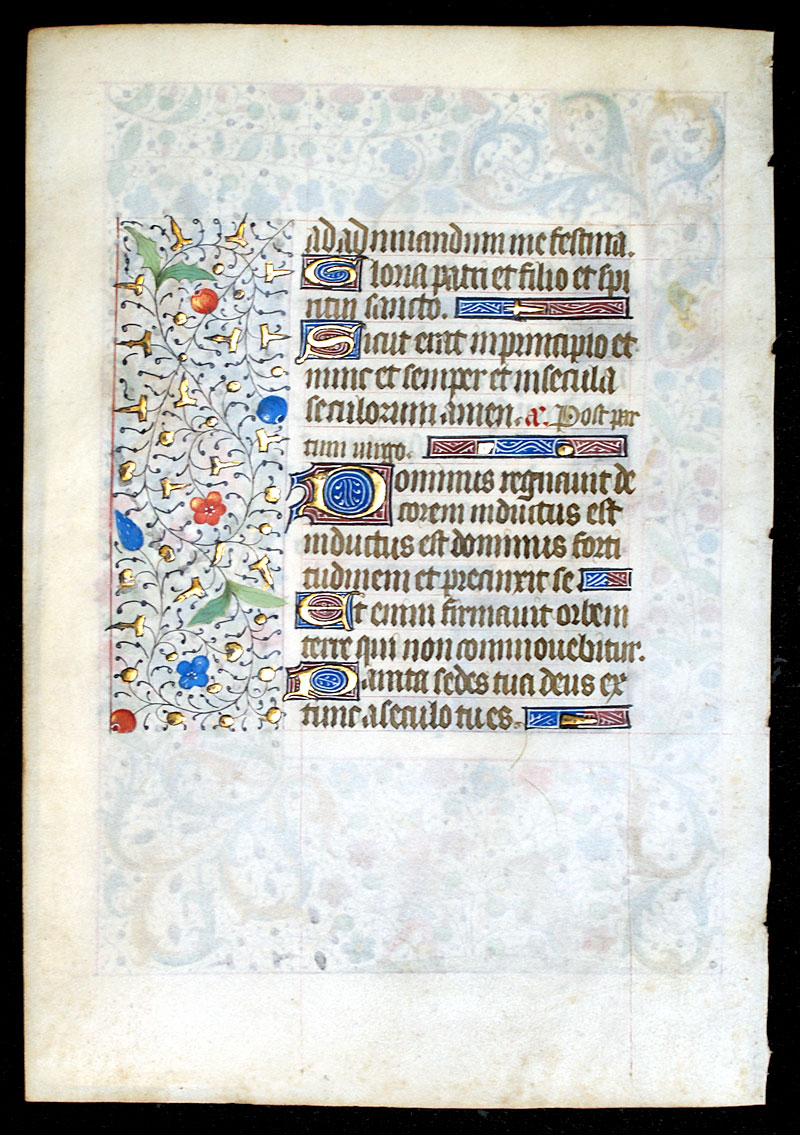 ad adiuuandum me festina.
Gloria patri et filio et spi
ritui sancto.
Sicut erat in principio et
nunc et semper et in secula
seculorum amen. a. Post par
tum uirgo.
Dominus regnauit de
corem indutus est
indutus est dominus forti
tudinem et precinxit se
Et enim firmauit orbem
terre qui non commouebitur.
Parata sedes tua deus ex
tunc a seculo tu es.